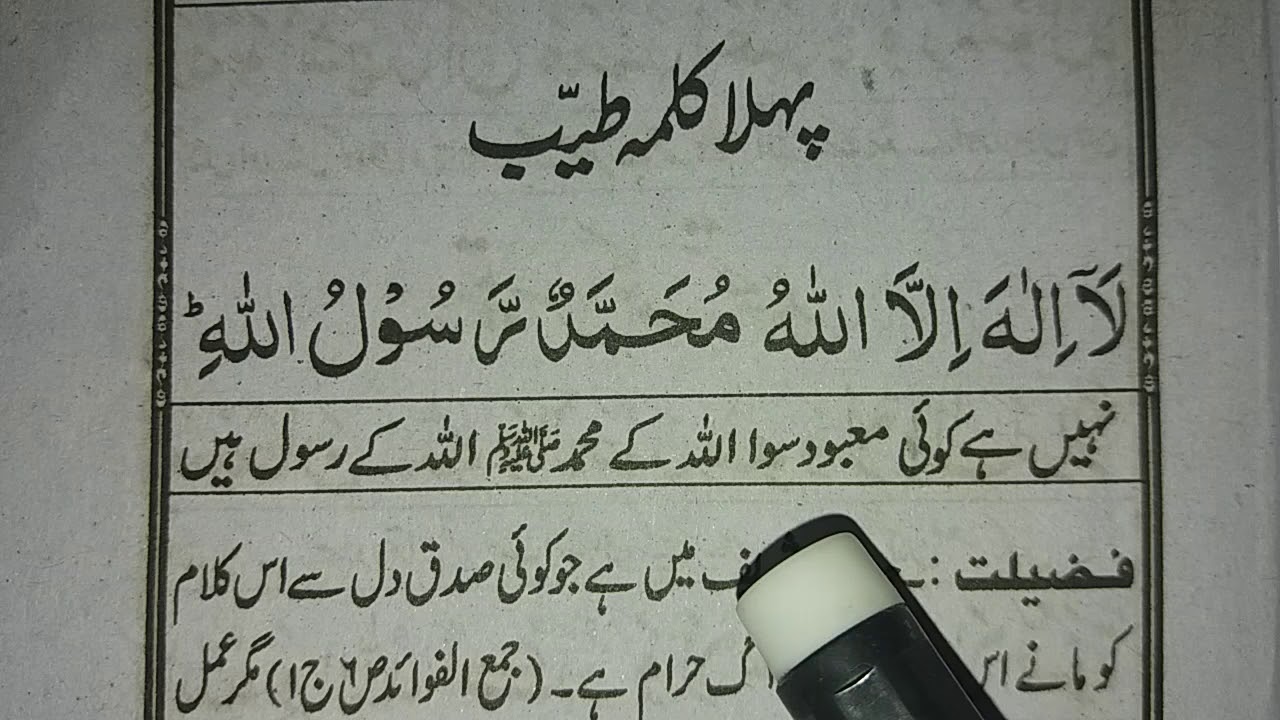 پہلا کلمہ طیّب
لَآ اِلٰهَ اِلَّا اللّٰهُ مُحَمَّدٌ رَّسُوْلُ اللّٰهِ ؕ
نہیں ہے کوئی معبود سوا اللہ کے محمد ﷺ اللہ کے رسول ہیں
فضیلت : میں ہے جو کوئی صدق دل سے اس کلام
کو مانے اس حرام ہے۔ (جمع الفوائد ص ۶ ج ۱) مگر عمل